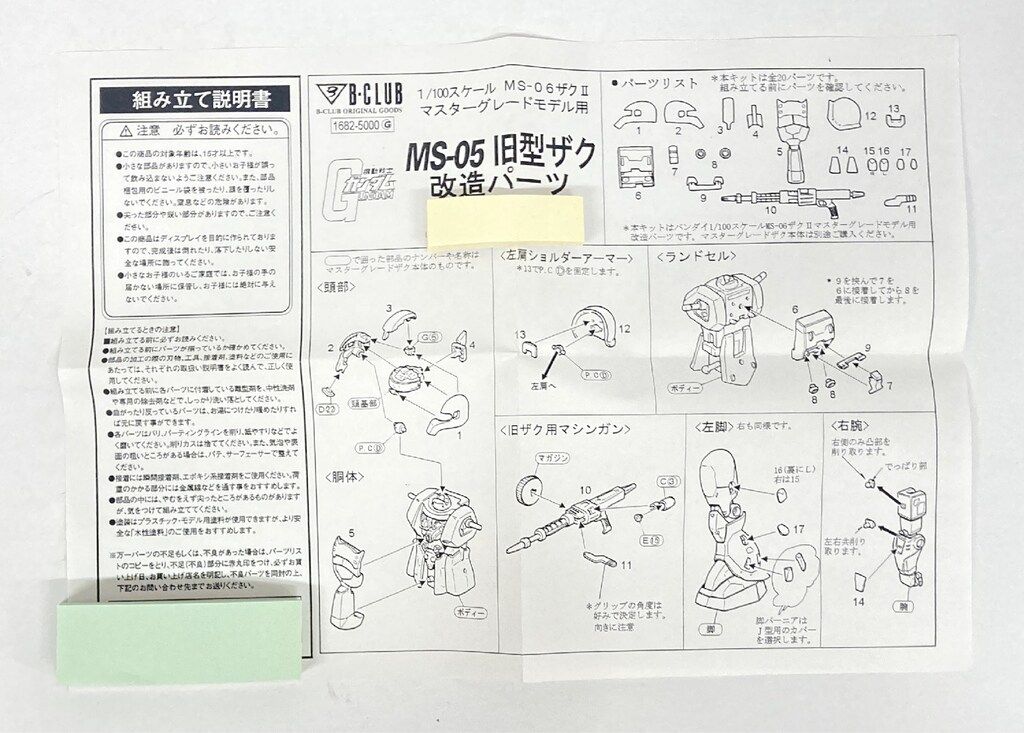 組み立て説明書
⚠注意 必ずお読みください。
●この商品の対象年齢は、15才以上です。
●小さな部品がありますので、小さいお子様が誤っ
て飲み込まないようご注意ください。また、部品
梱包用のビニール袋を被ったり、頭を覆ったりし
ないでください。窒息などの危険があります。
●尖った部分や鋭い部分がありますので、ご注意く
ださい。
●この商品はディスプレイを目的に作られておりま
すので、完成後は倒れたり、落下したりしない安
全な場所に飾ってください。
●小さなお子様のいるご家庭では、お子様の手の
届かない場所に保管し、お子様には絶対に与え
ないでください。
【組み立てるときの注意】
■組み立てる前に必ずお読みください。
●組み立てる前にパーツが揃っているか確かめてください。
●部品の加工の際の刃物、工具、接着剤、塗料などのご使用に
あたっては、それぞれの取扱い説明書をよく読んで、正しく使
用してください。
●組み立てる前に各パーツに付着している離型剤を、中性洗剤
や専用の除去剤などで、しっかり洗い落としてください。
●曲がったり反っているパーツは、お湯につけたり暖めたりすれ
ば元に戻す事ができます。
●各パーツはバリ、パーティングラインを削り、紙やすりなどでよ
く磨いてください。削りカスは捨ててください。また、気泡や表
面の粗いところがある場合は、パテ、サーフェーサーで整えて
ください。
●接着には瞬間接着剤、エポキシ系接着剤をご使用ください。荷
重のかかる部分には金属線などを通す事をおすすめします。
●部品の中には、やむをえず尖ったところがあるものがあります
が、気をつけて組み立ててください。
●塗装はプラスチック・モデル用塗料が使用できますが、より安
全な「水性塗料」のご使用をおすすめします。
※万一パーツの不足もしくは、不良があった場合は、パーツリス
トのコピーをとり、不足(不良)部分に赤丸印をつけ、必ずお買
い上げ日、お買い上げ店名を明記し、不良パーツを同封の上、
下記のお問い合わせ先までお送りください。
B-CLUB
B-CLUB ORIGINAL GOODS
1682-5000 G
1/100スケール MS-06ザクⅡ
マスターグレードモデル用
機動戦士
ガンダム
GUNDAM
MS-05 旧型ザク
改造パーツ
●パーツリスト
＊本キットは全20パーツです。
組み立てる前にパーツを確認してください。
1 2 3 4 5 12 13
6 7 8 9 10 14 15 16 17 11
＊本キットはバンダイ1/100スケールMS-06ザクⅡマスターグレードモデル用
改造パーツです。マスターグレードザク本体は別途ご購入ください。
で囲った部品のナンバーや名称は
マスターグレードザク本体のものです。
〈頭部〉
3
G⑥
2
4
D22
頭基部
1
P.CⒹ
〈左肩ショルダーアーマー〉
＊13でP.CⒹを固定します。
13
12
左肩へ
P.CⒹ
〈ランドセル〉
＊9を挟んで7を
6に接着してから8を
最後に接着します。
6
9
8
8
7
ボディー
〈胴体〉
5
ボディー
〈旧ザク用マシンガン〉
マガジン
10
C③
E⑮
11
＊グリップの角度は
好みで決定します。
向きに注意
〈左脚〉 右も同様です。
16(裏にL)
右は15
17
脚
脚バーニアは
J型用のカバー
を選択します。
〈右腕〉
右側のみ凸部を
削り取ります。
でっぱり部
左右共削り
取ります。
14
腕